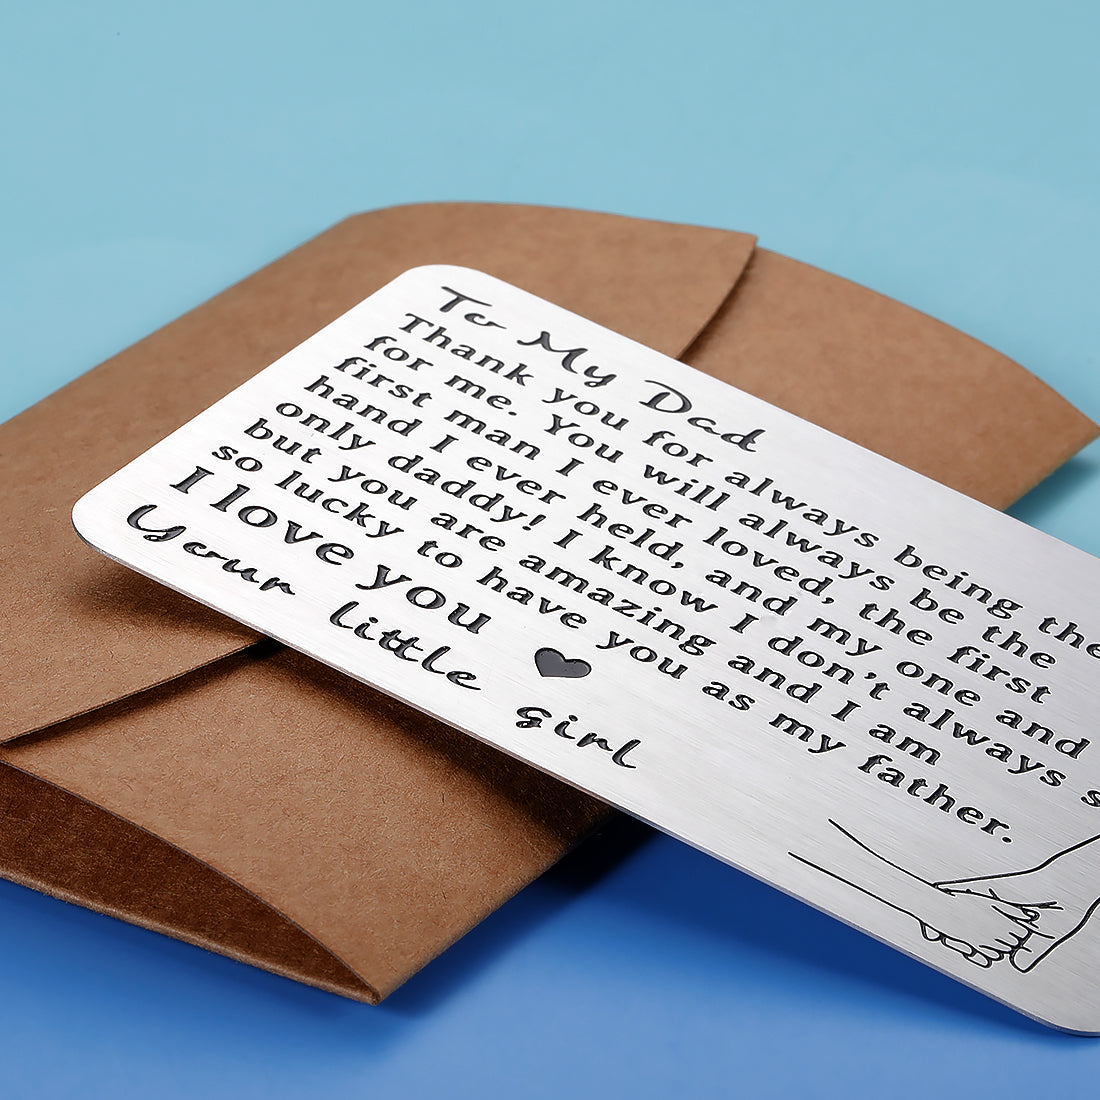 To My Dad
Thank you for always being the
for me. You will always be the
first man I ever loved, the first
hand I ever held, and my one and
only daddy! I know I don't always s
but you are amazing and I am
so lucky to have you as my father.
I love you
Your little girl